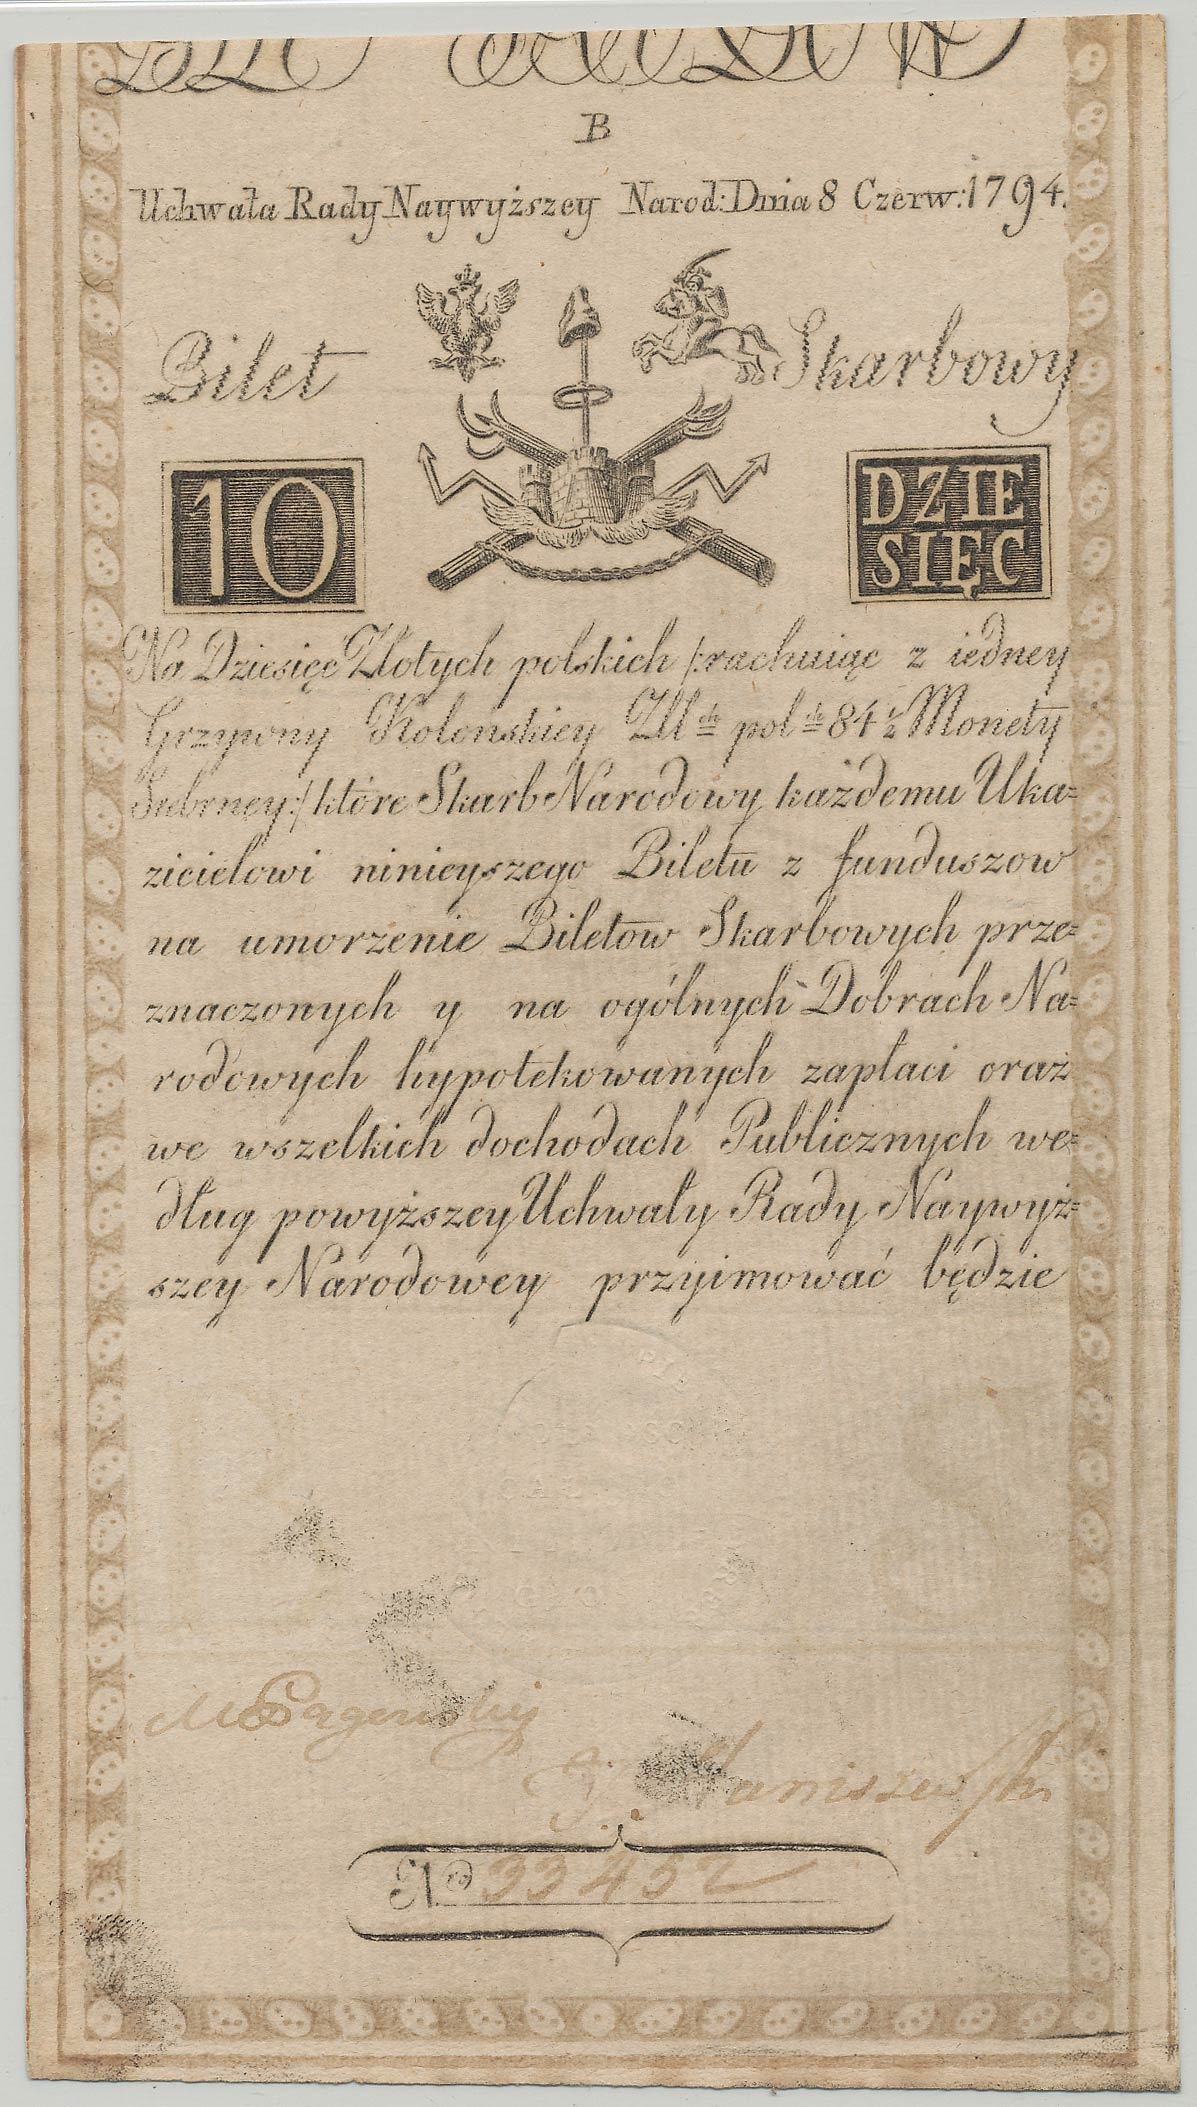 B
Uchwała Rady Naywyższey Narod: Dnia 8 Czerw: 1794.
Bilet Skarbowy
10
DZIE
SIĘC
Na Dziesięć Złotych polskich /:rachuiąc z iedney
Grzywny Kolonskiey Złł ch pol ch 84 1/2 Monety
Srebrney:/ które Skarb Narodowy każdemu Uka=
zicielowi ninieyszego Biletu z funduszow
na umorzenie Biletow Skarbowych prze=
znaczonych y na ogólnych Dobrach Na=
rodowych hypotekowanych zapłaci oraz
we wszelkich dochodach Publicznych we=
dług powyższey Uchwały Rady Naywyż=
szey Narodowey przyimować będzie
No 33452